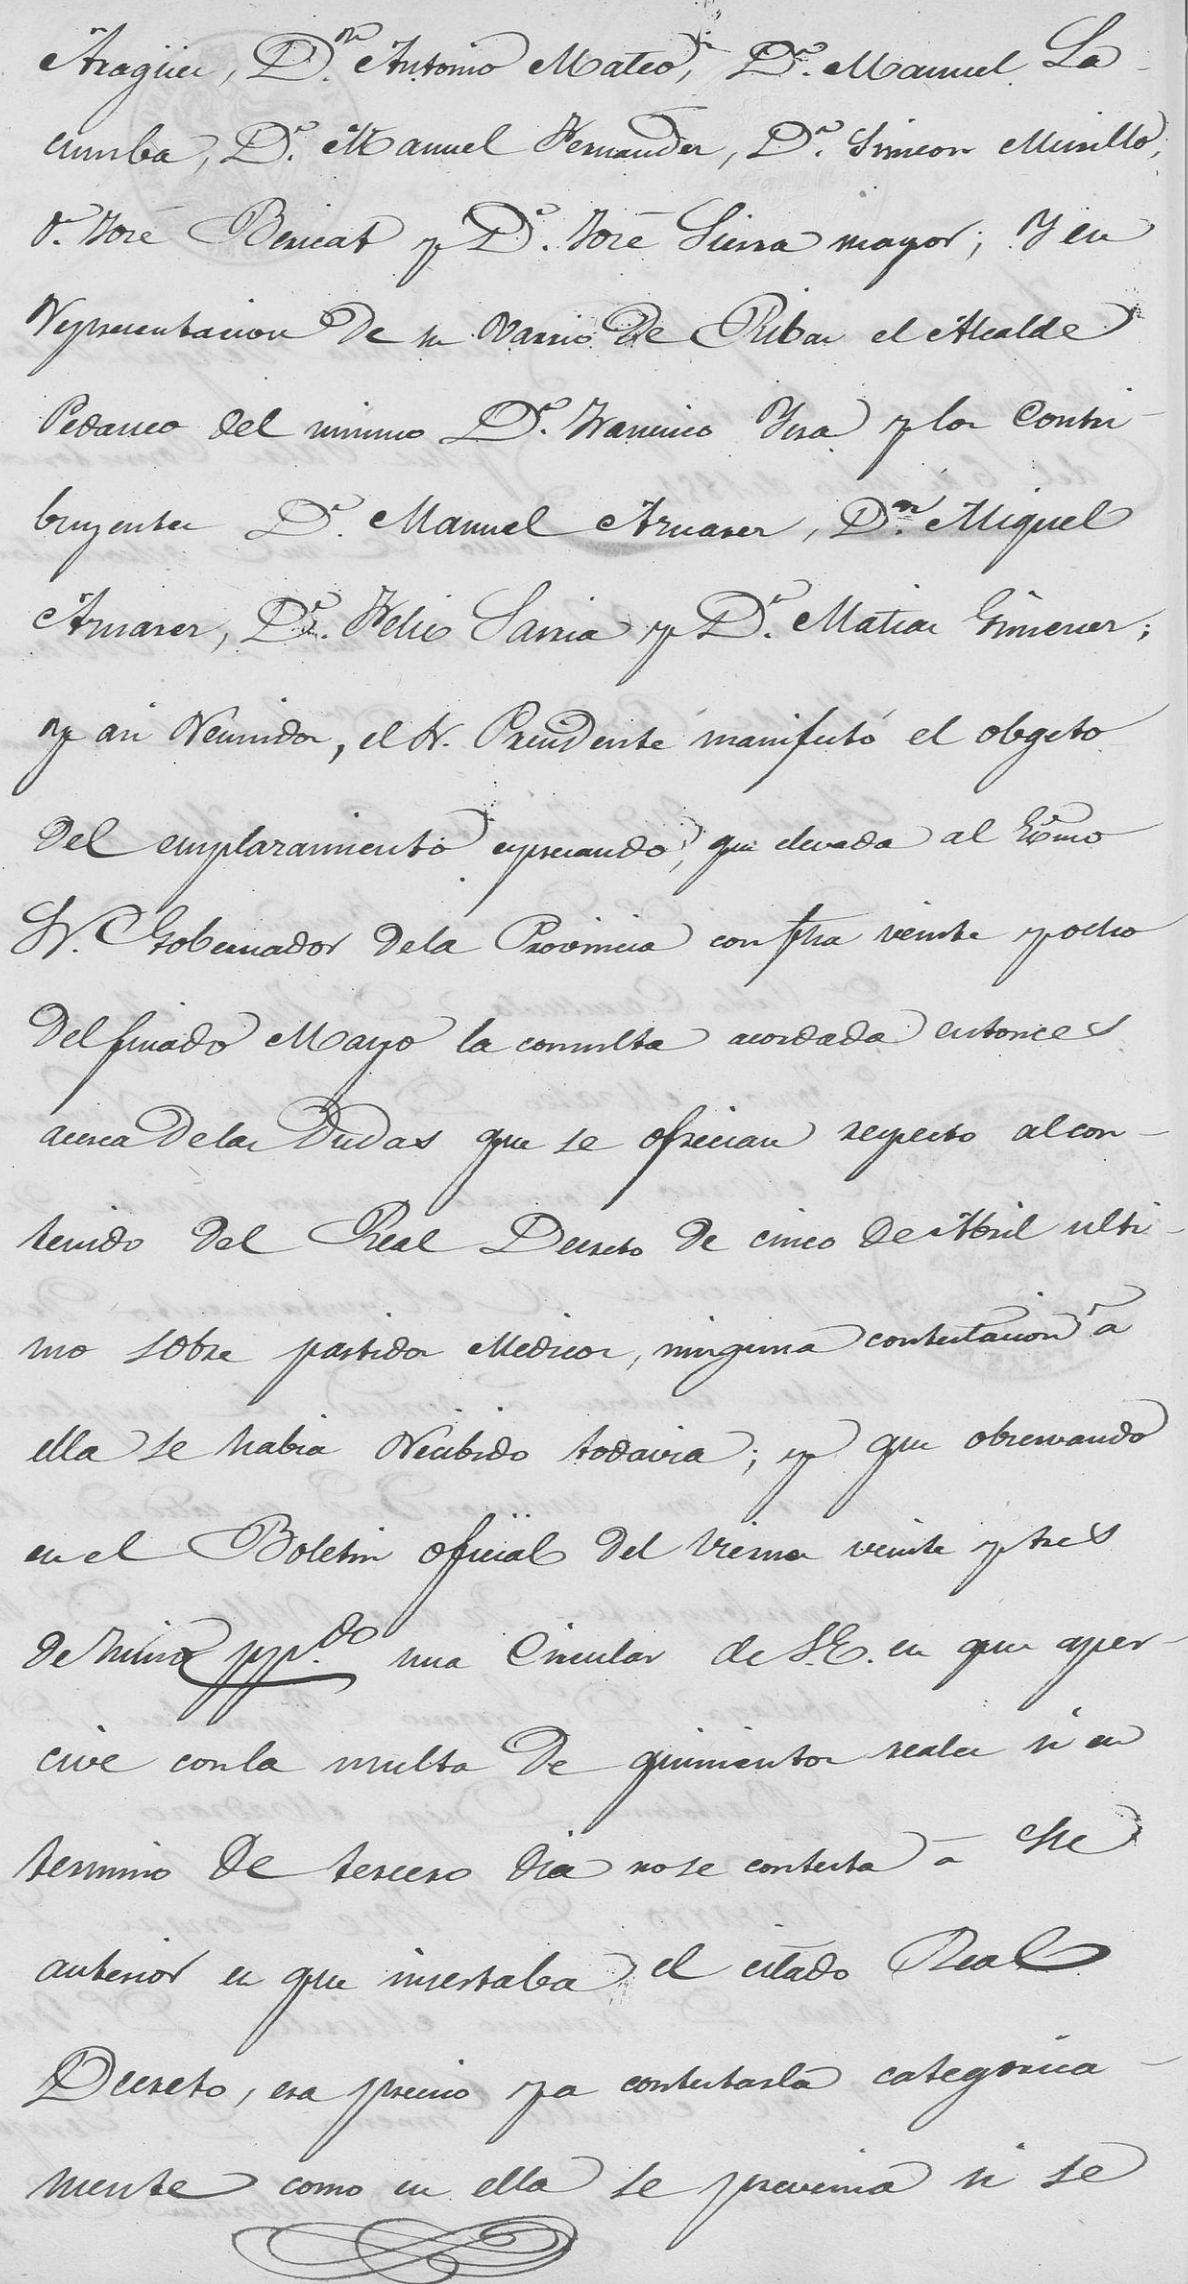 Aragües, D.n Antonio Mateo, D.n Manuel La
cumba, D.n Manuel Fernandez, D.n Simeon Murillo,
D.n José Bericat y D.n José Sierra mayor; Y en
Representacion de su Barrio de Ribas el Alcalde
Pedaneo del mismo D.n Francisco Ysra y los Contri-
buyentes D.n Manuel Aznarez, D.n Miguel
Aznarez, D.n Felix Sarria y D.n Matias Gimenez;
y asi Reunidos, el Sr. Presidente manifestó el obgeto
del emplazamiento espresando, que elevada al Exmo
Sr. Gobernador dela Provincia con fha veinte y ocho
del finado Mayo la consulta acordada entonces
acerca delas Dudas que se ofrecian respecto al con-
tenido del Real Decreto de cinco de Abril ulti-
mo sobre partidos Medicos, ninguna contestacion a
ella se habia Recibido todavia; y que observando
en el Boletin oficial del Viernes veinte y tres
de Junio pp.do una Circular de S.E. en que aper-
cive con la multa de quinientos reales si en
termino de tercero dia no se contesta a su
anterior en que insertaba el citado Real
Decreto, era preciso ya contestarla categorica-
mente como en ella se prevenia si se